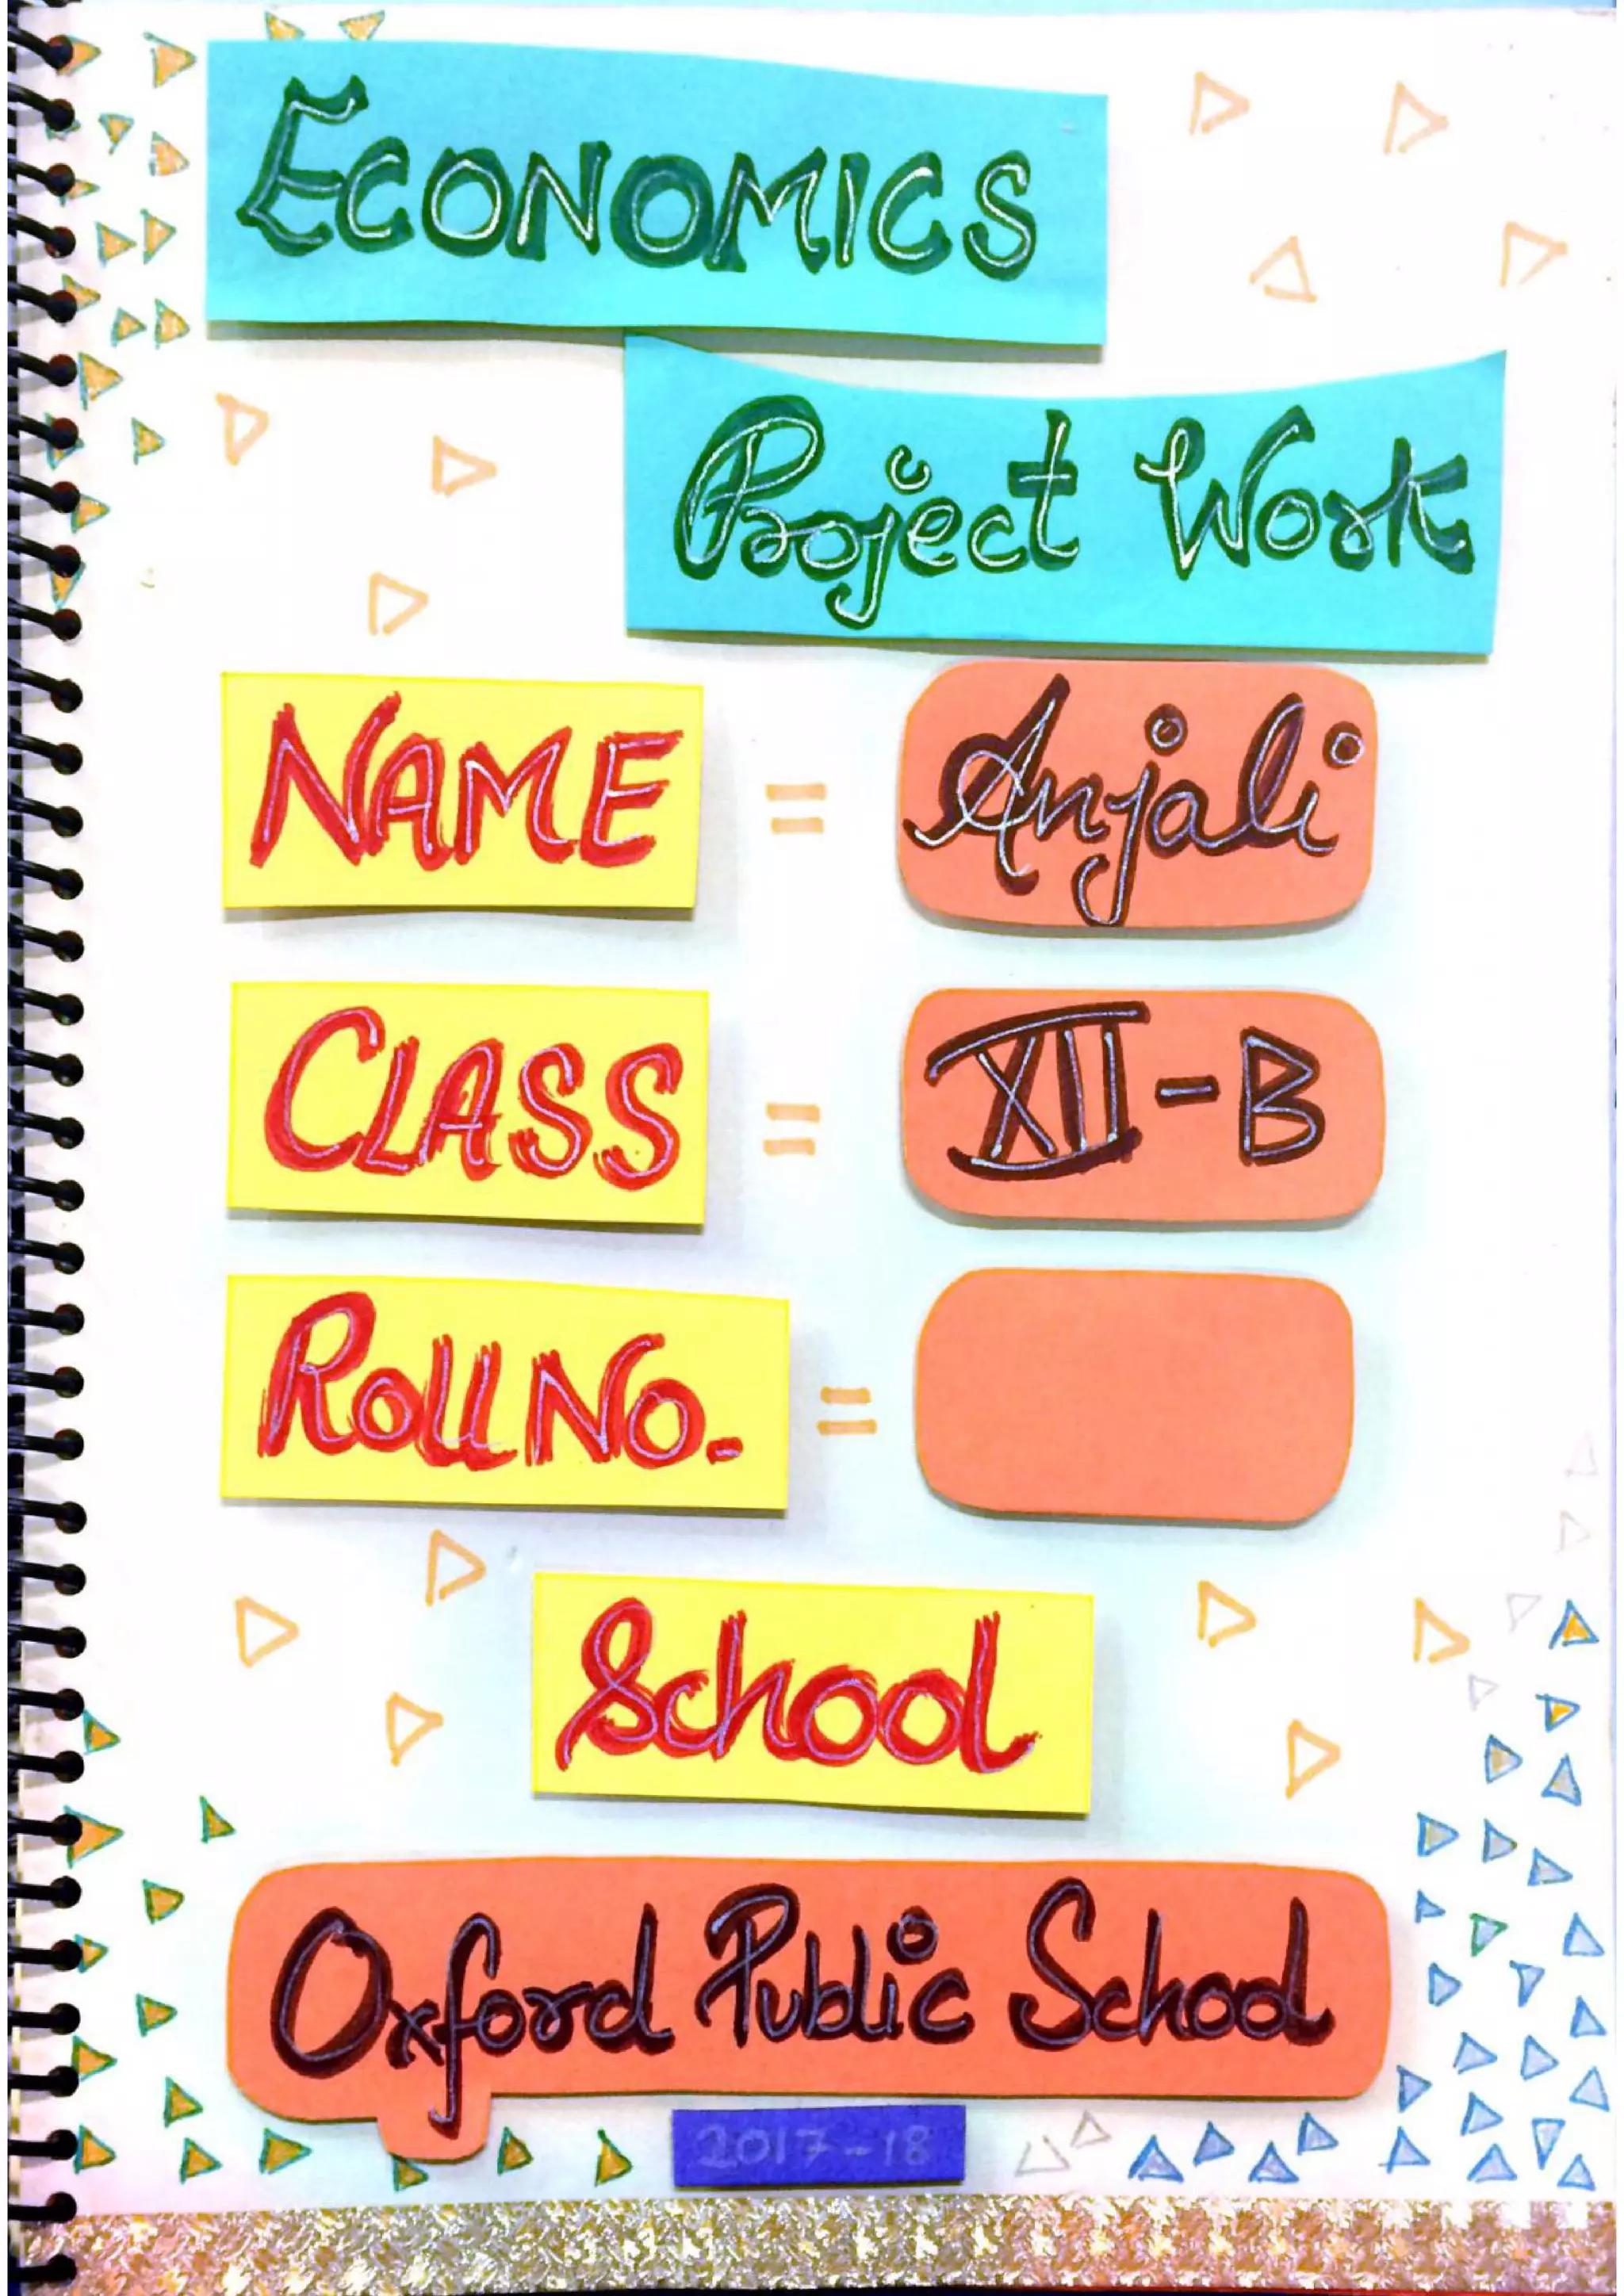 ECONOMICS
Project Work
NAME = Anjali
CLASS = XII-B
ROLL NO. =
School
Oxford Public School
2017-18